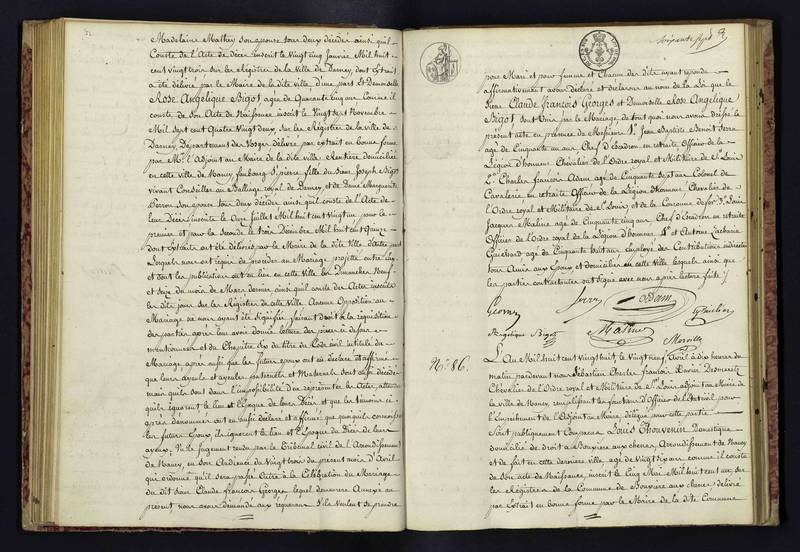 Madelaine Mathey son épouse tous deux décédés ainsi qu'il
Conste de l'Acte de décès inscrit le Vingt cinq Janvier Mil huit
cent vingt trois sur les Régistres de la Ville de Darney, dont Extrait
a été délivré par le Maire de la dite ville, d'une part Et Demoiselle
Rose Angélique Bigot agée de Quarante cinq ans Comme il
conste de son Acte de Naissance inscrit le Vingt sept Novembre
Mil sept cent Quatre Vingt deux, sur les Régistres de la ville de
Darney, Département des Vosges délivré par extrait en bonne forme
par Mr l'Adjoint au Maire de la dite ville, Rentière domiciliée
en cette ville de Nancy faubourg St pierre, fille du Sieur Joseph Bigot
vivant Conseiller au Balliage royal de Darney et de Dame Marguerite
son épouse tous deux décédés ainsi qu'il conste de l'Acte de
leur Décès inscrits le Onze Juillet Mil huit cent Vingt un pour le
premier et pour la Seconde le trois Décembre Mil huit cent
dont Extraits ont été délivrés par le Maire de la dite Ville, d'autre part
Lesquels nous ont requis de procéder au Mariage projetté entre Eux,
et dont les publications ont eu lieu en cette Ville les Dimanches Neuf
et Seize du mois de Mars dernier ainsi qu'il conste des Actes inscrits
les dits jours sur les Régistres de cette Ville Aucune Opposition au
Mariage ne nous ayant été signifiée faisant Droit à la réquisition
des parties après leur avoir donné lecture des pièces ci dessus
mentionnées et du Chapitre six du titre du Code civil intitulé du
Mariage après aussi que les futurs époux ont eu déclaré et affirmé
que leurs ayeuls et ayeules paternels et Maternels sont aussi décédés
mais qu'ils sont dans l'impossibilité d'en représenter les Actes, attendu
qu'ils ignorent le lieu et l'époque de leurs Décès et que les témoins ci
après dénommés ont eu aussi déclaré et affirmé que quoiqu'ils connaissent
les futurs Epoux, ils ignorent le lieu et l'Epoque du Décès de leurs
ayeux. Vu le Jugement rendu par le Tribunal civil de l'Arrondissement
de Nancy, en son Audience du Vingt trois du présent mois d'Avril
qui ordonne qu'il sera passé Outre à la Célébration du Mariage
du dit Sieur Claude François Georges, lequel demeurera Annexé au
présent nous avons demandé aux requérans s'ils veulent se prendre
soixante sept
pour Mari et pour femme et Chacun d'eux ayant répondu
affirmativement avons déclaré et déclarons au nom de la Loi que le
Sieur Claude François Georges et Demoiselle Rose Angélique
Bigot sont Unis par le Mariage de tout quoi nous avons dréssé le
présent acte en présence de Messieurs 1° Jean Baptiste Benoit
agé de Cinquante un ans, Chef d'Escadron en retraite Officier de la
Légion d'honneur Chevalier de l'Ordre royal et Militaire de St Louis
2° Charles François Adam agé de Cinquante sept ans Colonel de
Cavalerie en retraite Officier de la Légion d'Honneur Chevalier de
l'Ordre royal et Militaire de St Louis, et de la Couronne de fer, 3° Louis
Jacques Maline agé de Cinquante cinq ans Chef d'Escadron en retraite
Officier de l'Ordre royal de la Légion d'honneur 4° et Antoine Zacharie
agé de Cinquante huit ans Employé des Contributions indirectes
tous Amis des Epoux et domiciliés en cette Ville lesquels ainsi que
les parties contractantes ont signé avec nous après lecture faite /.
Georges
Adam
Angélique Bigot
Maline
N° 86.
L'An Mil huit cent Vingt huit, le Vingt neuf Avril à dix heures du
matin pardevant nous Sébastien Charles François Xavier
Chevalier de l'Ordre royal et Militaire de St Louis, adjoint au Maire de
la Ville de Nancy, remplissant les fonctions d'Officier de l'Etat civil pour
l'Empêchement de l'Adjoint au Maire délégué pour cette partie
Sont publiquement Comparus Louis Thouvenin Domestique
domicilié de droit à Bouxière aux chênes Arrondissement de Nancy
et de fait en cette dernière ville agé de vingt six ans comme il conste
de son acte de Naissance, inscrit le Cinq Mai Mil huit cent un, sur
les Régistres de la Commune de Bouxière aux chênes, délivré
par Extrait en bonne forme par le Maire de la dite Commune